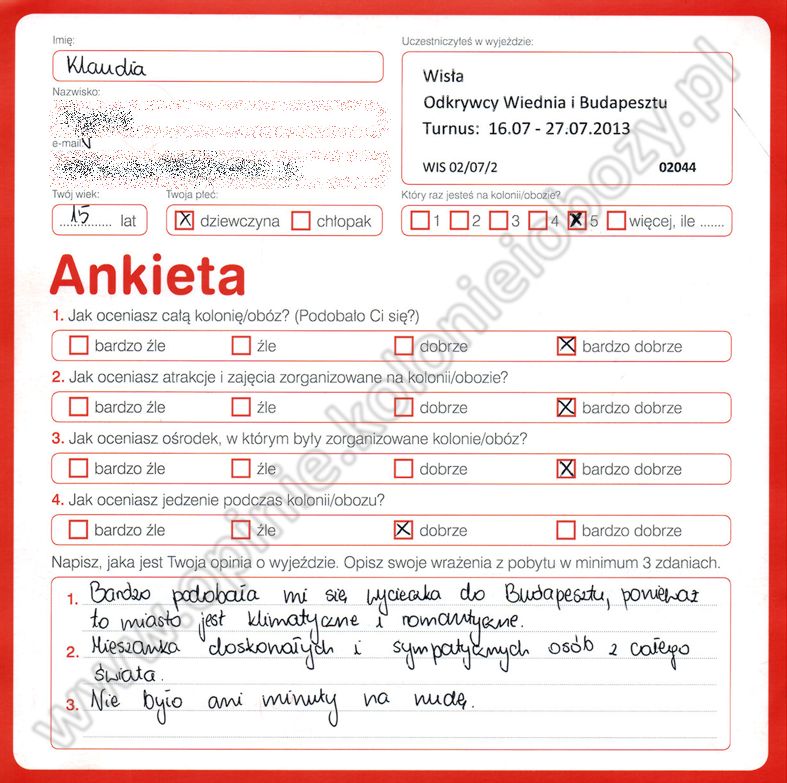 Imię:
Uczestniczyłeś w wyjeździe:
Klaudia
Wisła
Odkrywcy Wiednia i Budapesztu
Turnus: 16.07 - 27.07.2013
WIS 02/07/2 02044
Nazwisko:
e-mail
Twój wiek: Twoja płeć: Który raz jesteś na kolonii/obozie?
15 lat X dziewczyna chłopak 1 2 3 4 X 5 więcej, ile .......
Ankieta
1. Jak oceniasz całą kolonię/obóz? (Podobało Ci się?)
bardzo źle źle dobrze X bardzo dobrze
2. Jak oceniasz atrakcje i zajęcia zorganizowane na kolonii/obozie?
bardzo źle źle dobrze X bardzo dobrze
3. Jak oceniasz ośrodek, w którym były zorganizowane kolonie/obóz?
bardzo źle źle dobrze X bardzo dobrze
4. Jak oceniasz jedzenie podczas kolonii/obozu?
bardzo źle źle X dobrze bardzo dobrze
Napisz, jaka jest Twoja opinia o wyjeździe. Opisz swoje wrażenia z pobytu w minimum 3 zdaniach.
1. Bardzo podobała mi się wycieczka do Budapesztu, ponieważ
to miasto jest klimatyczne i romantyczne.
2. Mieszanka doskonałych i sympatycznych osób z całego
świata.
3. Nie było ani minuty na nudę.
www.opinie.kolonieiobozy.pl